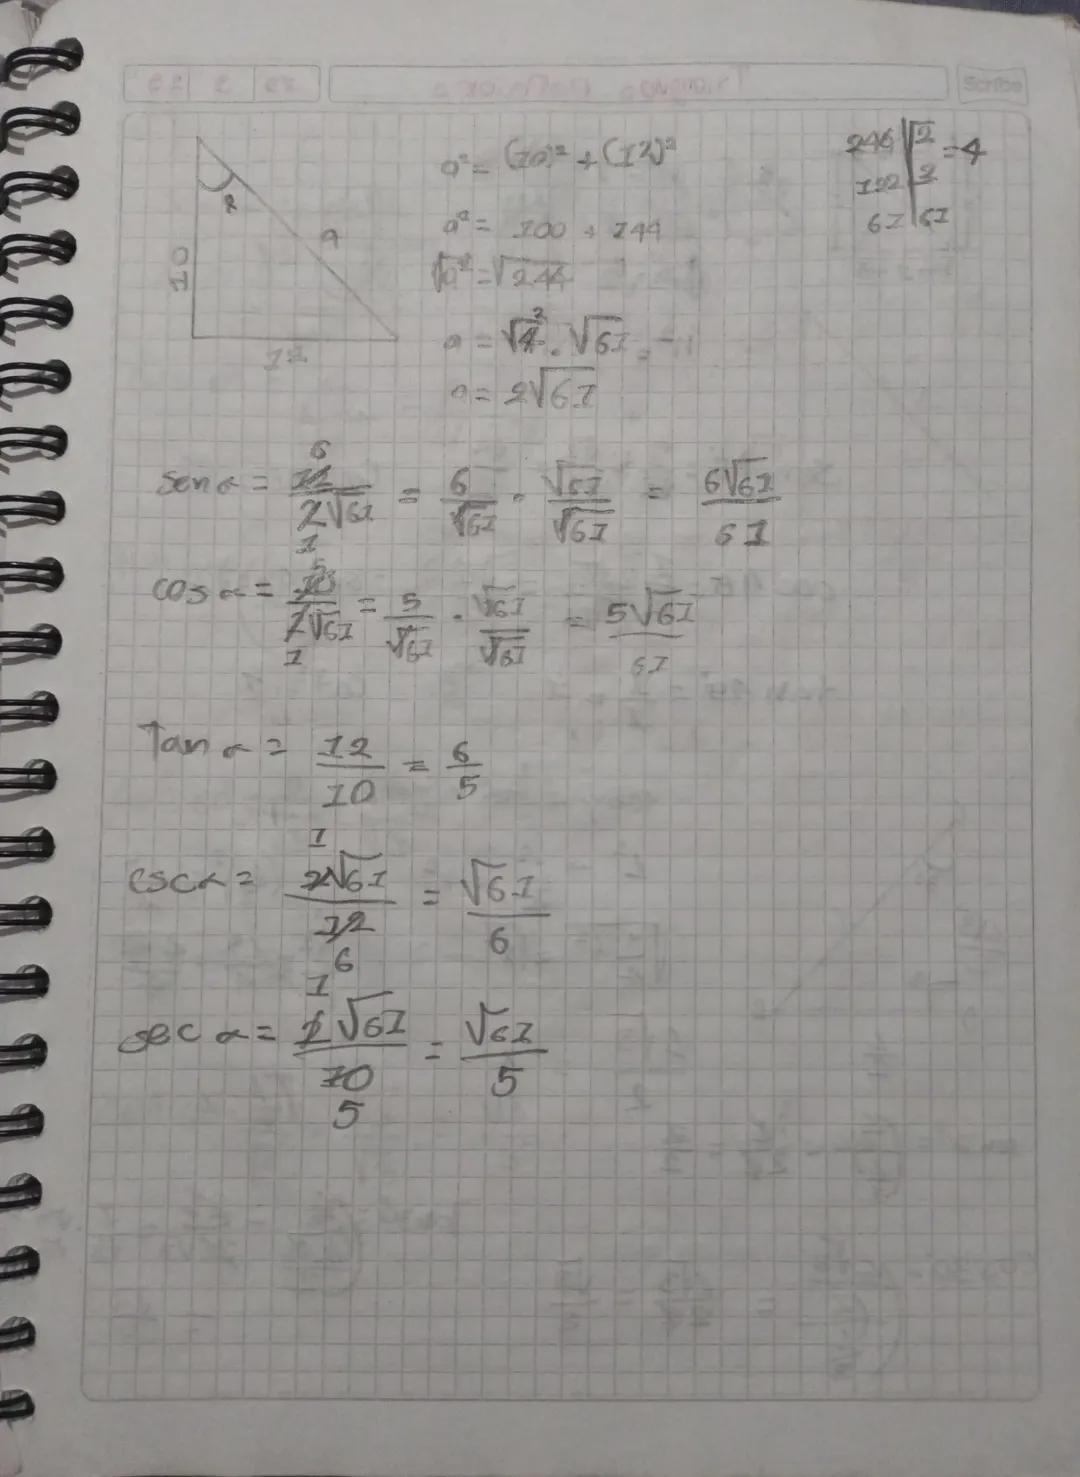 Scribe
a² = (10)² + (12)²
a² = 100 + 144
√a² = √244
a = √4² . √61
a = 2√61
244 | 2 = 4
122 | 2
61 | 61
α
a
10
12
sen α = 12/2√61 6 1 = 6/√61 · √61/√61 = 6√61/61
cos α = 10/2√61 5 1 = 5/√61 · √61/√61 = 5√61/61
Tan α = 12/10 = 6/5
csc α = 2√61/12 1 6 = √61/6
sec α = 2√61/10 1 5 = √61/5